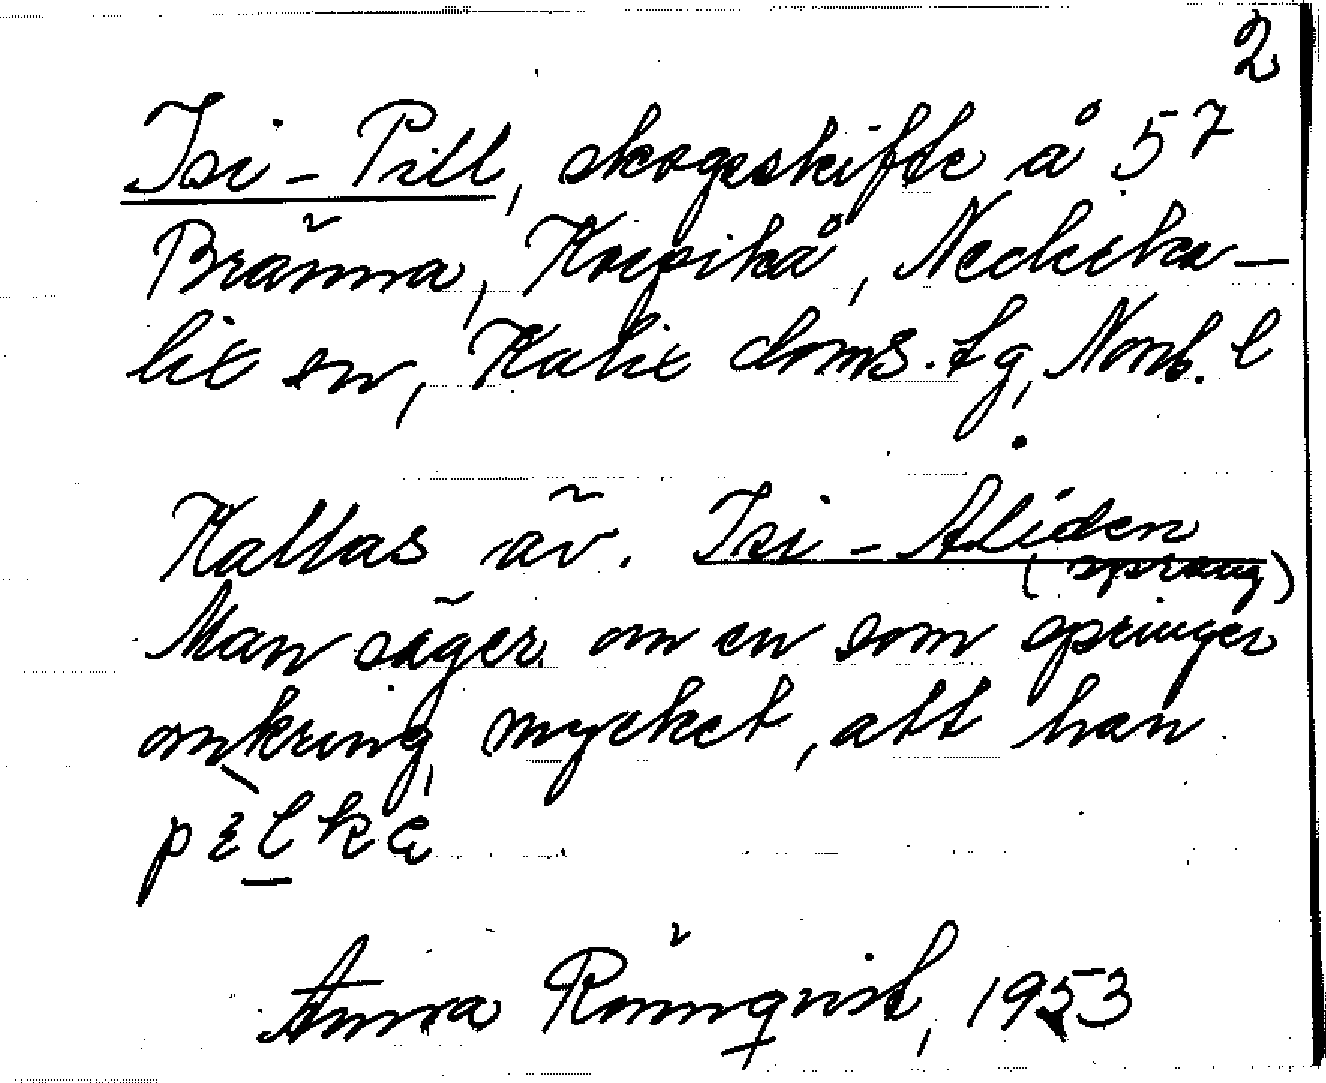 2
Isi-Pill, skogsskifte å 57
Bränna, Korpikå, Nederka-
lix sn, Kalix doms. tg, Norrb. l
Kallas äv. Isi-Aliden
(sprang)
Man säger om en som springer
omkring mycket, att han
Anna Rönnqvist, 1953